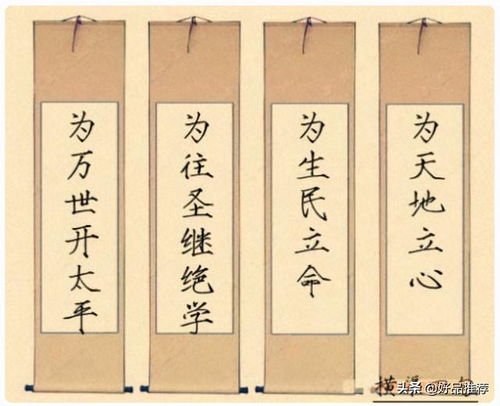 为天地立心
为生民立命
为往圣继绝学
为万世开太平
横渠
头条@好品推荐